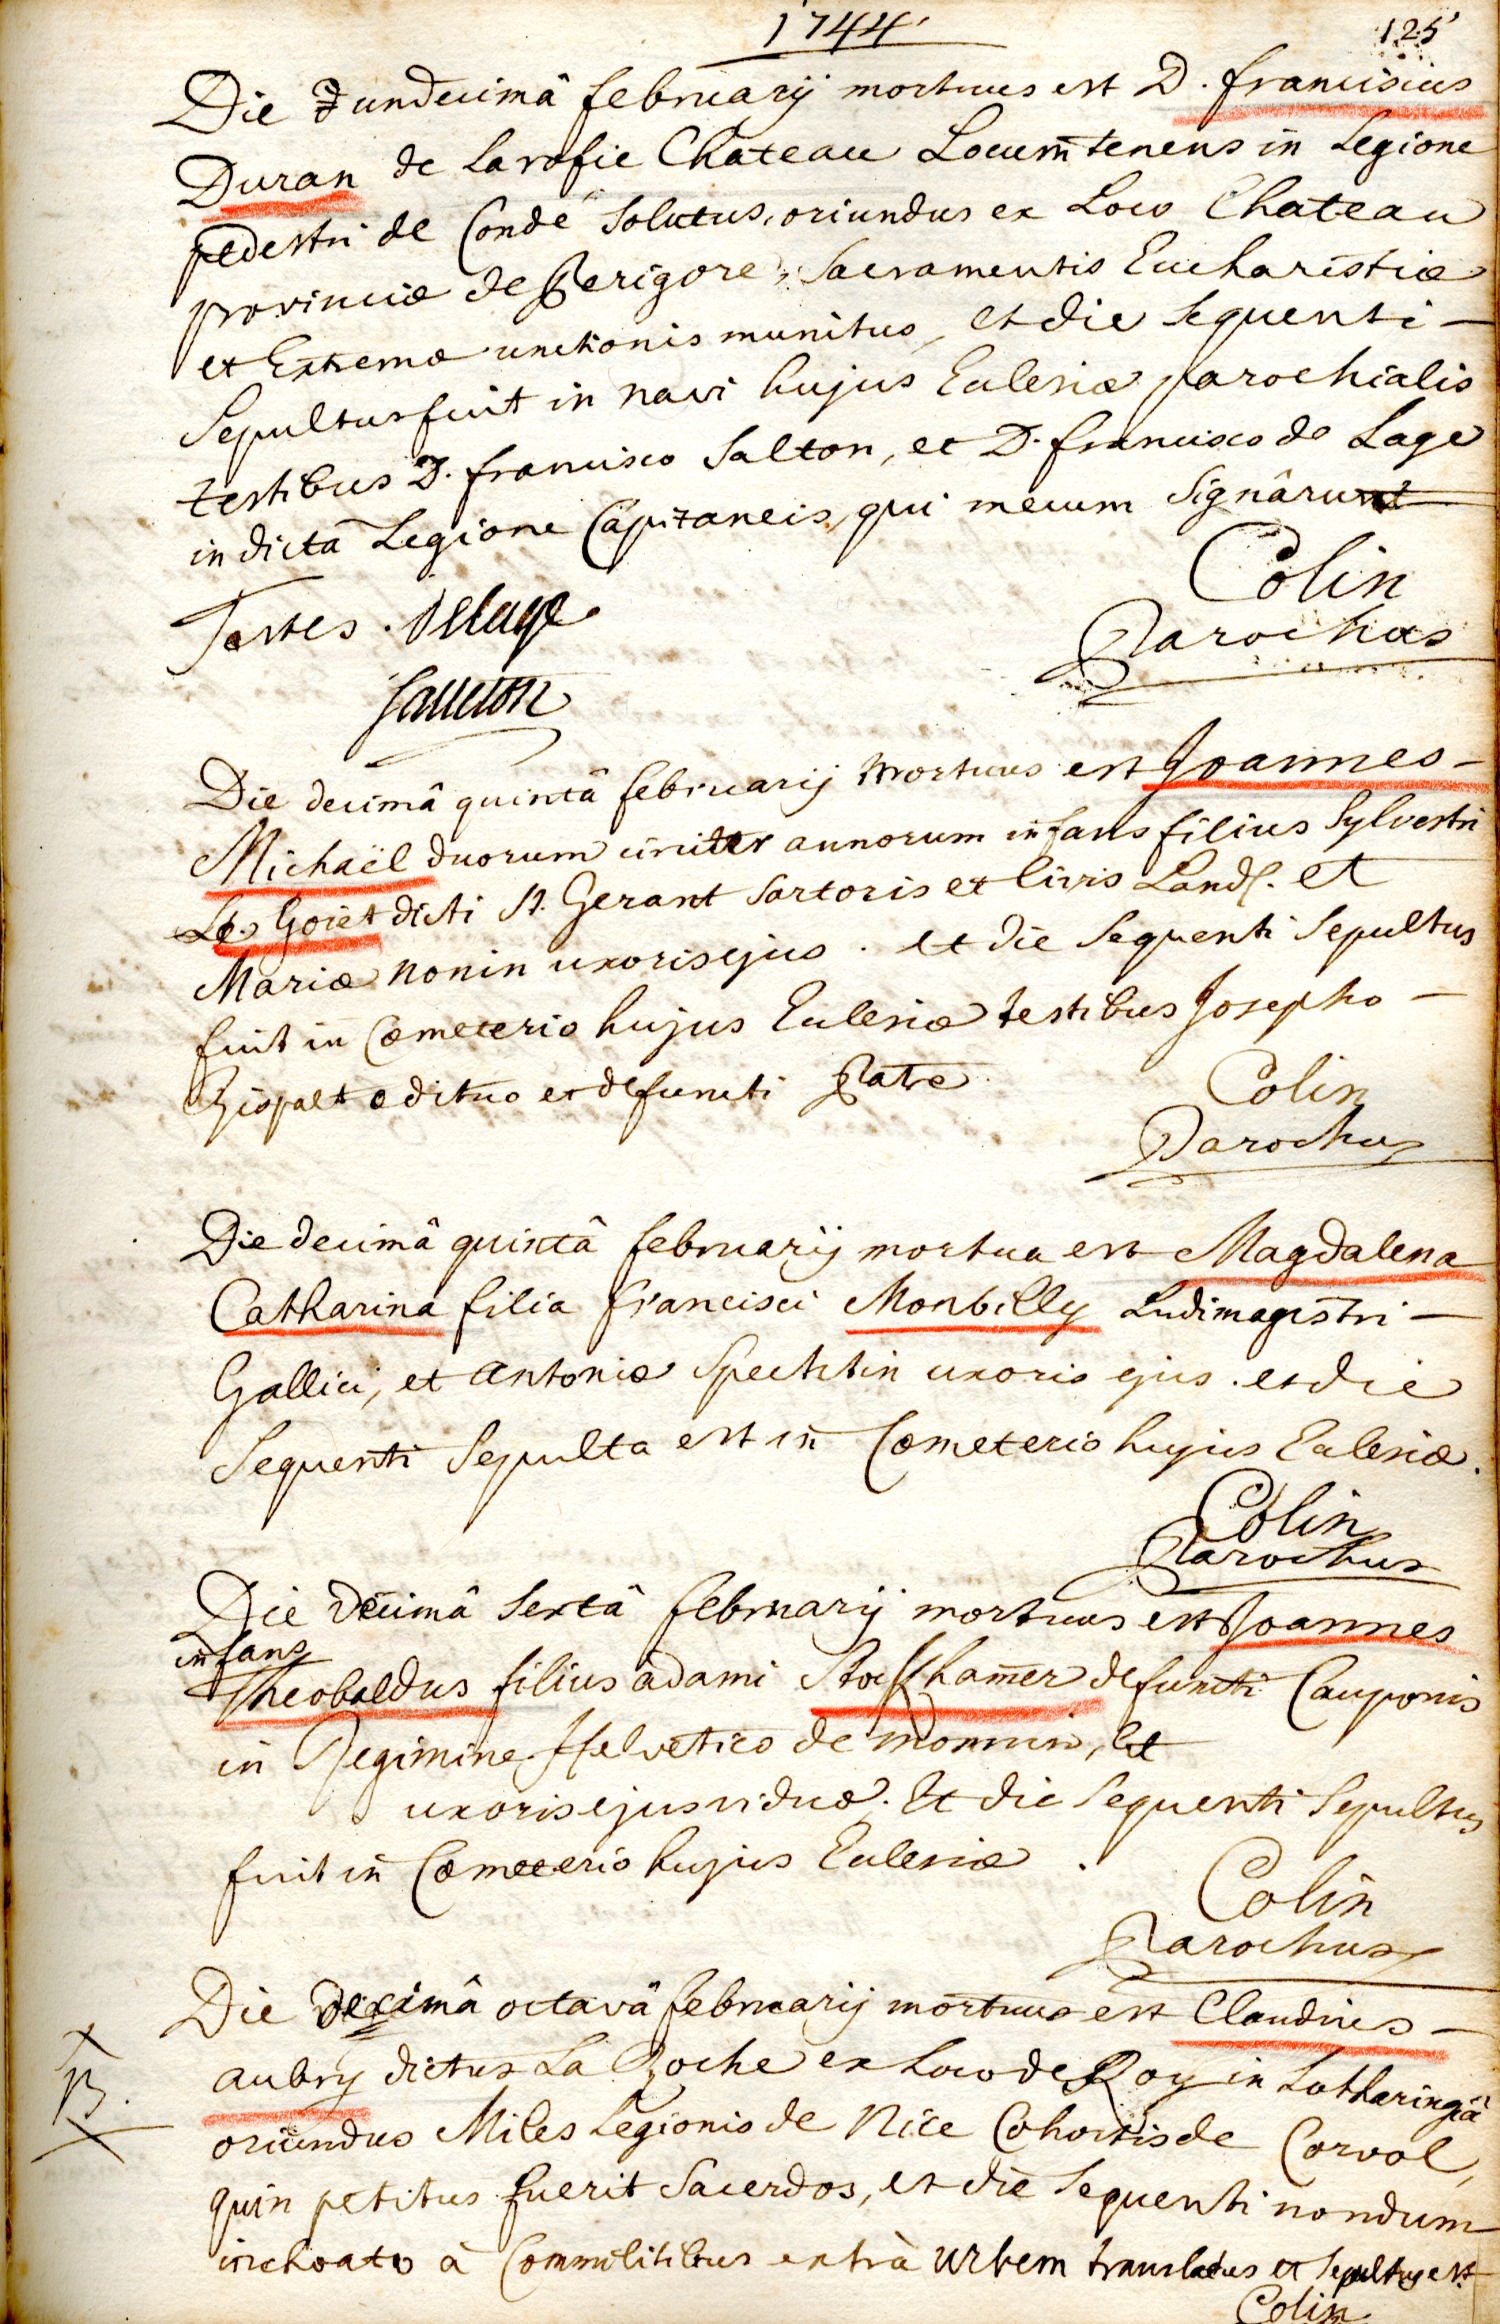 1744
125
Die undecimâ februarij mortuus est D. franciscus
Duran de Larofie Chateau Locumtenens in Legione
pedestri de Condé Solutus, oriundus ex Loco Chateau
provinciæ de Perigore, Sacramentis Eucharistiæ
et Extremæ unctionis munitus, et die sequenti –
Sepultus fuit in navi hujus Ecclesiæ parochialis
testibus D. francisco Salton, et D. francisco de Lage
in dicta Legione Capitaneis, qui mecum Signârunt
Colin
Parochus
Testes. Delage
Die decimâ quintâ februarij mortuus est Joannes –
Michaël duorum annorum infans filius Sylvestri
Le Goiet dicti St. Gerant Sartoris et Civis Land. et
Mariæ Nonin uxoris ejus. et die Sequenti Sepultus
fuit in Cœmeterio hujus Ecclesiæ testibus Josepho –
ædituo et defuncti Patre
Colin
Parochus
Die decimâ quintâ februarij mortua est Magdalena
Catharina filia francisci Monbilly Ludimagistri –
Gallici, et Antoniæ Spechtin uxoris ejus. et die
Sequenti Sepulta est in Cœmeterio hujus Ecclesiæ.
Colin
Parochus
Die decimâ sextâ februarij mortuus est Joannes
infans
Theobaldus filius adami Stockhamer defuncti Cauponis
in Regimine Helvetico de monnin, et
uxoris ejus viduæ. Et die Sequenti Sepultus
fuit in Cœmeterio hujus Ecclesiæ.
Colin
Parochus
Die decimâ octavâ februarij mortuus est Claudius –
aubry dictus La Roche ex Loco de Roy in Lotharingiâ
oriundus Miles Legionis de Nice Cohortis de Corvol,
quin petitus fuerit Sacerdos, et die Sequenti nondum
inchoato à Commilitibus extrà urbem translatus et Sepultus est.
Colin